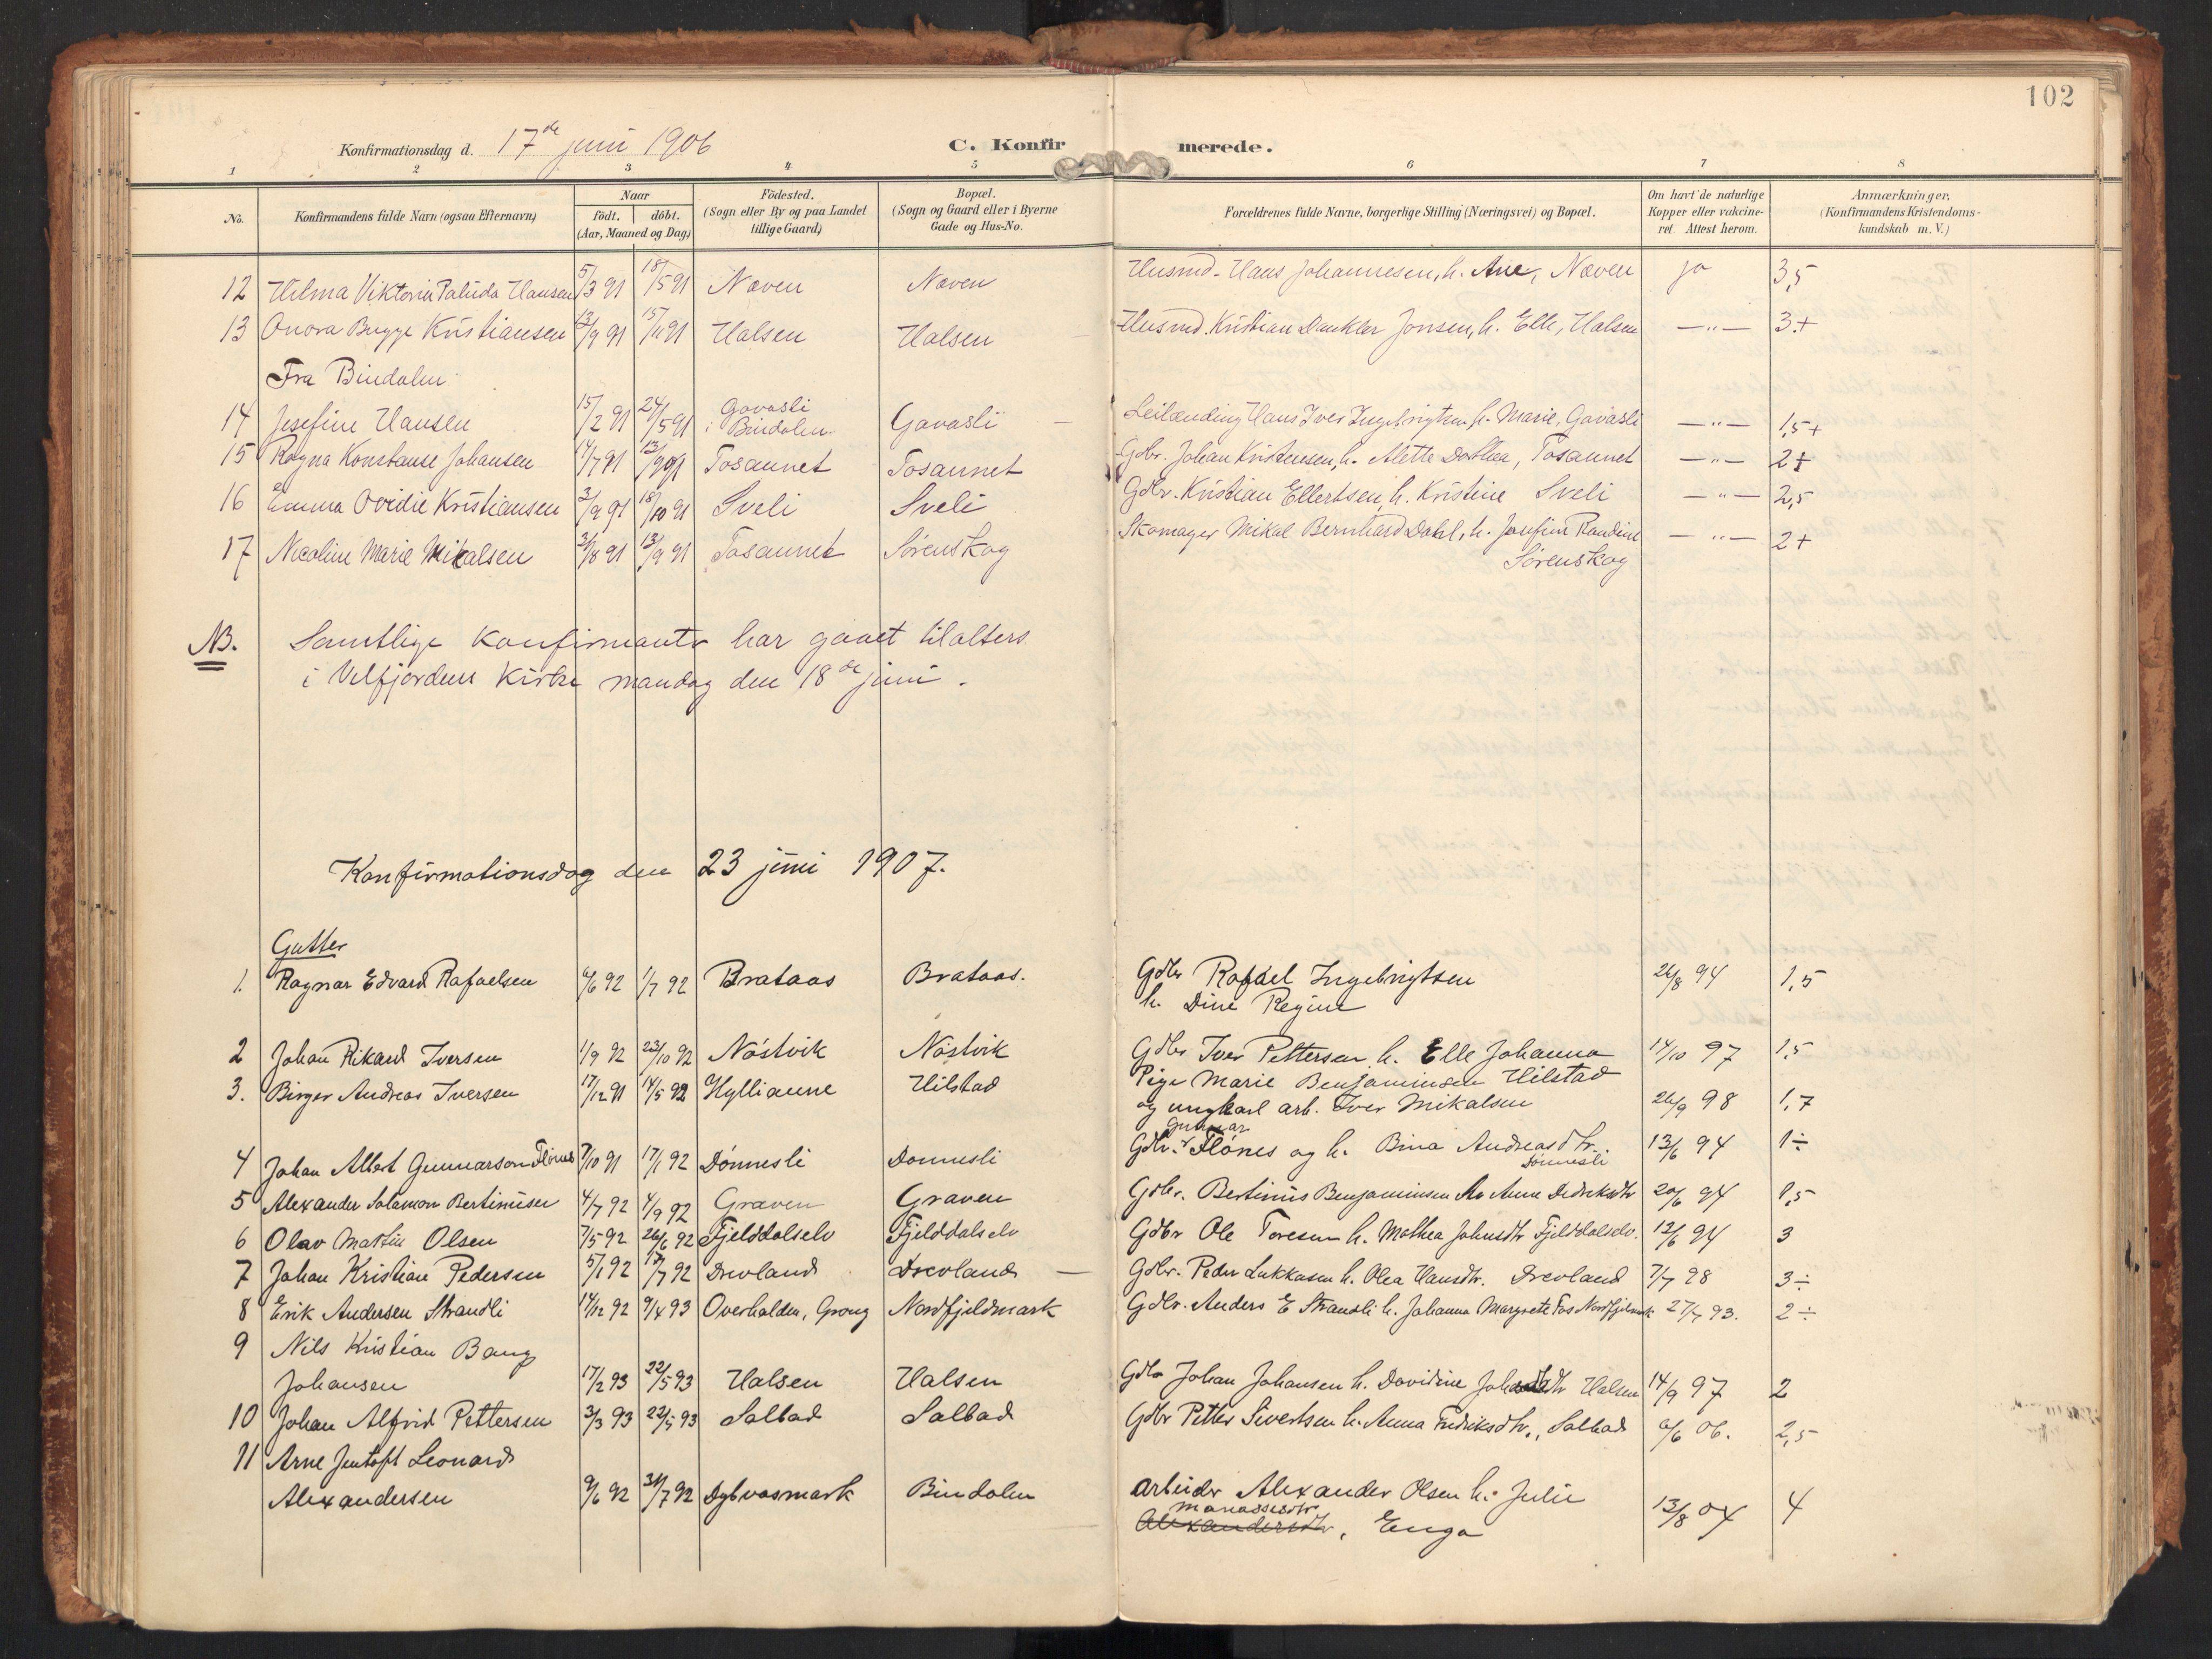 102
Konfirmationsdag d. 17de juni 1906 C. Konfirmerede.
1 2 3 4 5 6 7 8
No. Konfirmandens fulde Navn (ogsaa Efternavn) Naar födt. döbt. (Aar, Maaned og Dag) Födested. (Sogn eller By og paa Landet tillige Gaard) Bopæl. (Sogn og Gaard eller i Byerne Gade og Hus-No. Forældrenes fulde Navne, borgerlige Stilling (Næringsvei) og Bopæl. Om havt de naturlige Kopper eller vakcineret. Attest herom. Anmærkninger, (Konfirmandens Kristendomskundskab m. V.)
12 Hilma Viktoria Paluda Hansen 5/3 91 18/5 91 Næven Næven Husmd. Hans Johannesen, h. Ane, Næven ja 3,5
13 Onora Bugge Kristiansen 13/9 91 15/11 91 Halsen Halsen Husmd. Kristian Jonsen, h. Elle, Halsen —"— 3+
Fra Bindalen
14 Josefine Hansen 15/2 91 24/5 91 Gavasli i Bindalen Gavasli Leilænding Hans Iver Ingebrigtsen h. Marie, Gavasli —"— 1,5+
15 Ragna Konstanse Johansen 14/7 91 13/9 91 Tosaunet Tosaunet Gdbr. Johan Kristensen, h. Alette Dorthea, Tosaunet —"— 2+
16 Emma Ovidie Kristiansen 3/9 91 18/10 91 Sveli Sveli Gdbr. Kristian Ellertsen, h. Kristine Sveli —"— 2,5
17 Nicoline Marie Mikalsen 31/8 91 13/9 91 Tosaunet Sørenskog Skomager Mikal Bernhard Dahl, h. Josefine Randine Sørenskog —"— 2+
NB. Samtlige konfirmanter har gaaet tilalters
i Velfjordens Kirke mandag den 18de juni.
Konfirmationsdag den 23 juni 1907.
Gutter
1. Ragnar Edvard Rafaelsen 6/6 92 1/7 92 Brataas Brataas. Gdbr Rafael Ingebrigtsen 26/8 94 1,5
h. Dine Regine
2 Johan Rikard Iversen 1/9 92 23/10 92 Nöstvik Nöstvik Gdbr Iver Pettersen h. Elle Johanna 14/10 97 1,5
3. Birger Andreas Iversen 17/12 91 14/5 92 Hylliaune Hilstad Pige Marie Benjaminsen Hilstad
og ungkarl arb. Iver Mikalsen 26/9 98 1,7
4 Johan Albert Gunnarson Flönes 7/10 91 17/1 92 Dönnesli Donnesli Gdbr. Gunnar Flönes og h. Bina Andreasdtr. Dönnesli 13/6 94 1÷
5 Alexander Salamon Bertinusen 4/7 92 4/9 92 Graven Graven Gdbr. Bertinus Benjaminsen h. Anne Didriksdtr 20/6 94 1,5
6 Olav Martin Olsen 7/5 92 26/6 92 Fjelddalselv Fjelddalselv Gdbr Ole Toresen h. Mathea Johnsdtr Fjelddalselv. 12/6 94 3
7 Johan Kristian Pedersen 5/1 92 17/7 92 Drevland Drevland — Gdbr. Peder Lukkasen h. Olea Hansdtr. Drevland 7/7 98 3÷
8 Erik Andersen Strandli 14/12 92 9/4 93 Overhalden, Grong Nordfjeldmark Gdbr. Anders E Strandli h. Johanna Margrete Fos Nordfjeldmark 27/7 93. 2÷
9 Nils Kristian Bang
Johansen 17/2 93 22/5 93 Halsen Halsen Gdbr Johan Johansen h. Davidine Halsen 14/9 97 2
10 Johan Alfrid Pettersen 3/3 93 22/5 93 Salbad Salbad Gdbr Petter Sivertsen h. Anna Fredriksdtr., Salbad 6/6 06. 2,5
11 Arne Jentoft Leonard
Alexandersen 9/6 92 31/7 92 Dybvasmark Bindalen arbeider Alexander Olsen h. Julie
Manassesdtr
Alexandersdtr, Enga 13/8 04 4